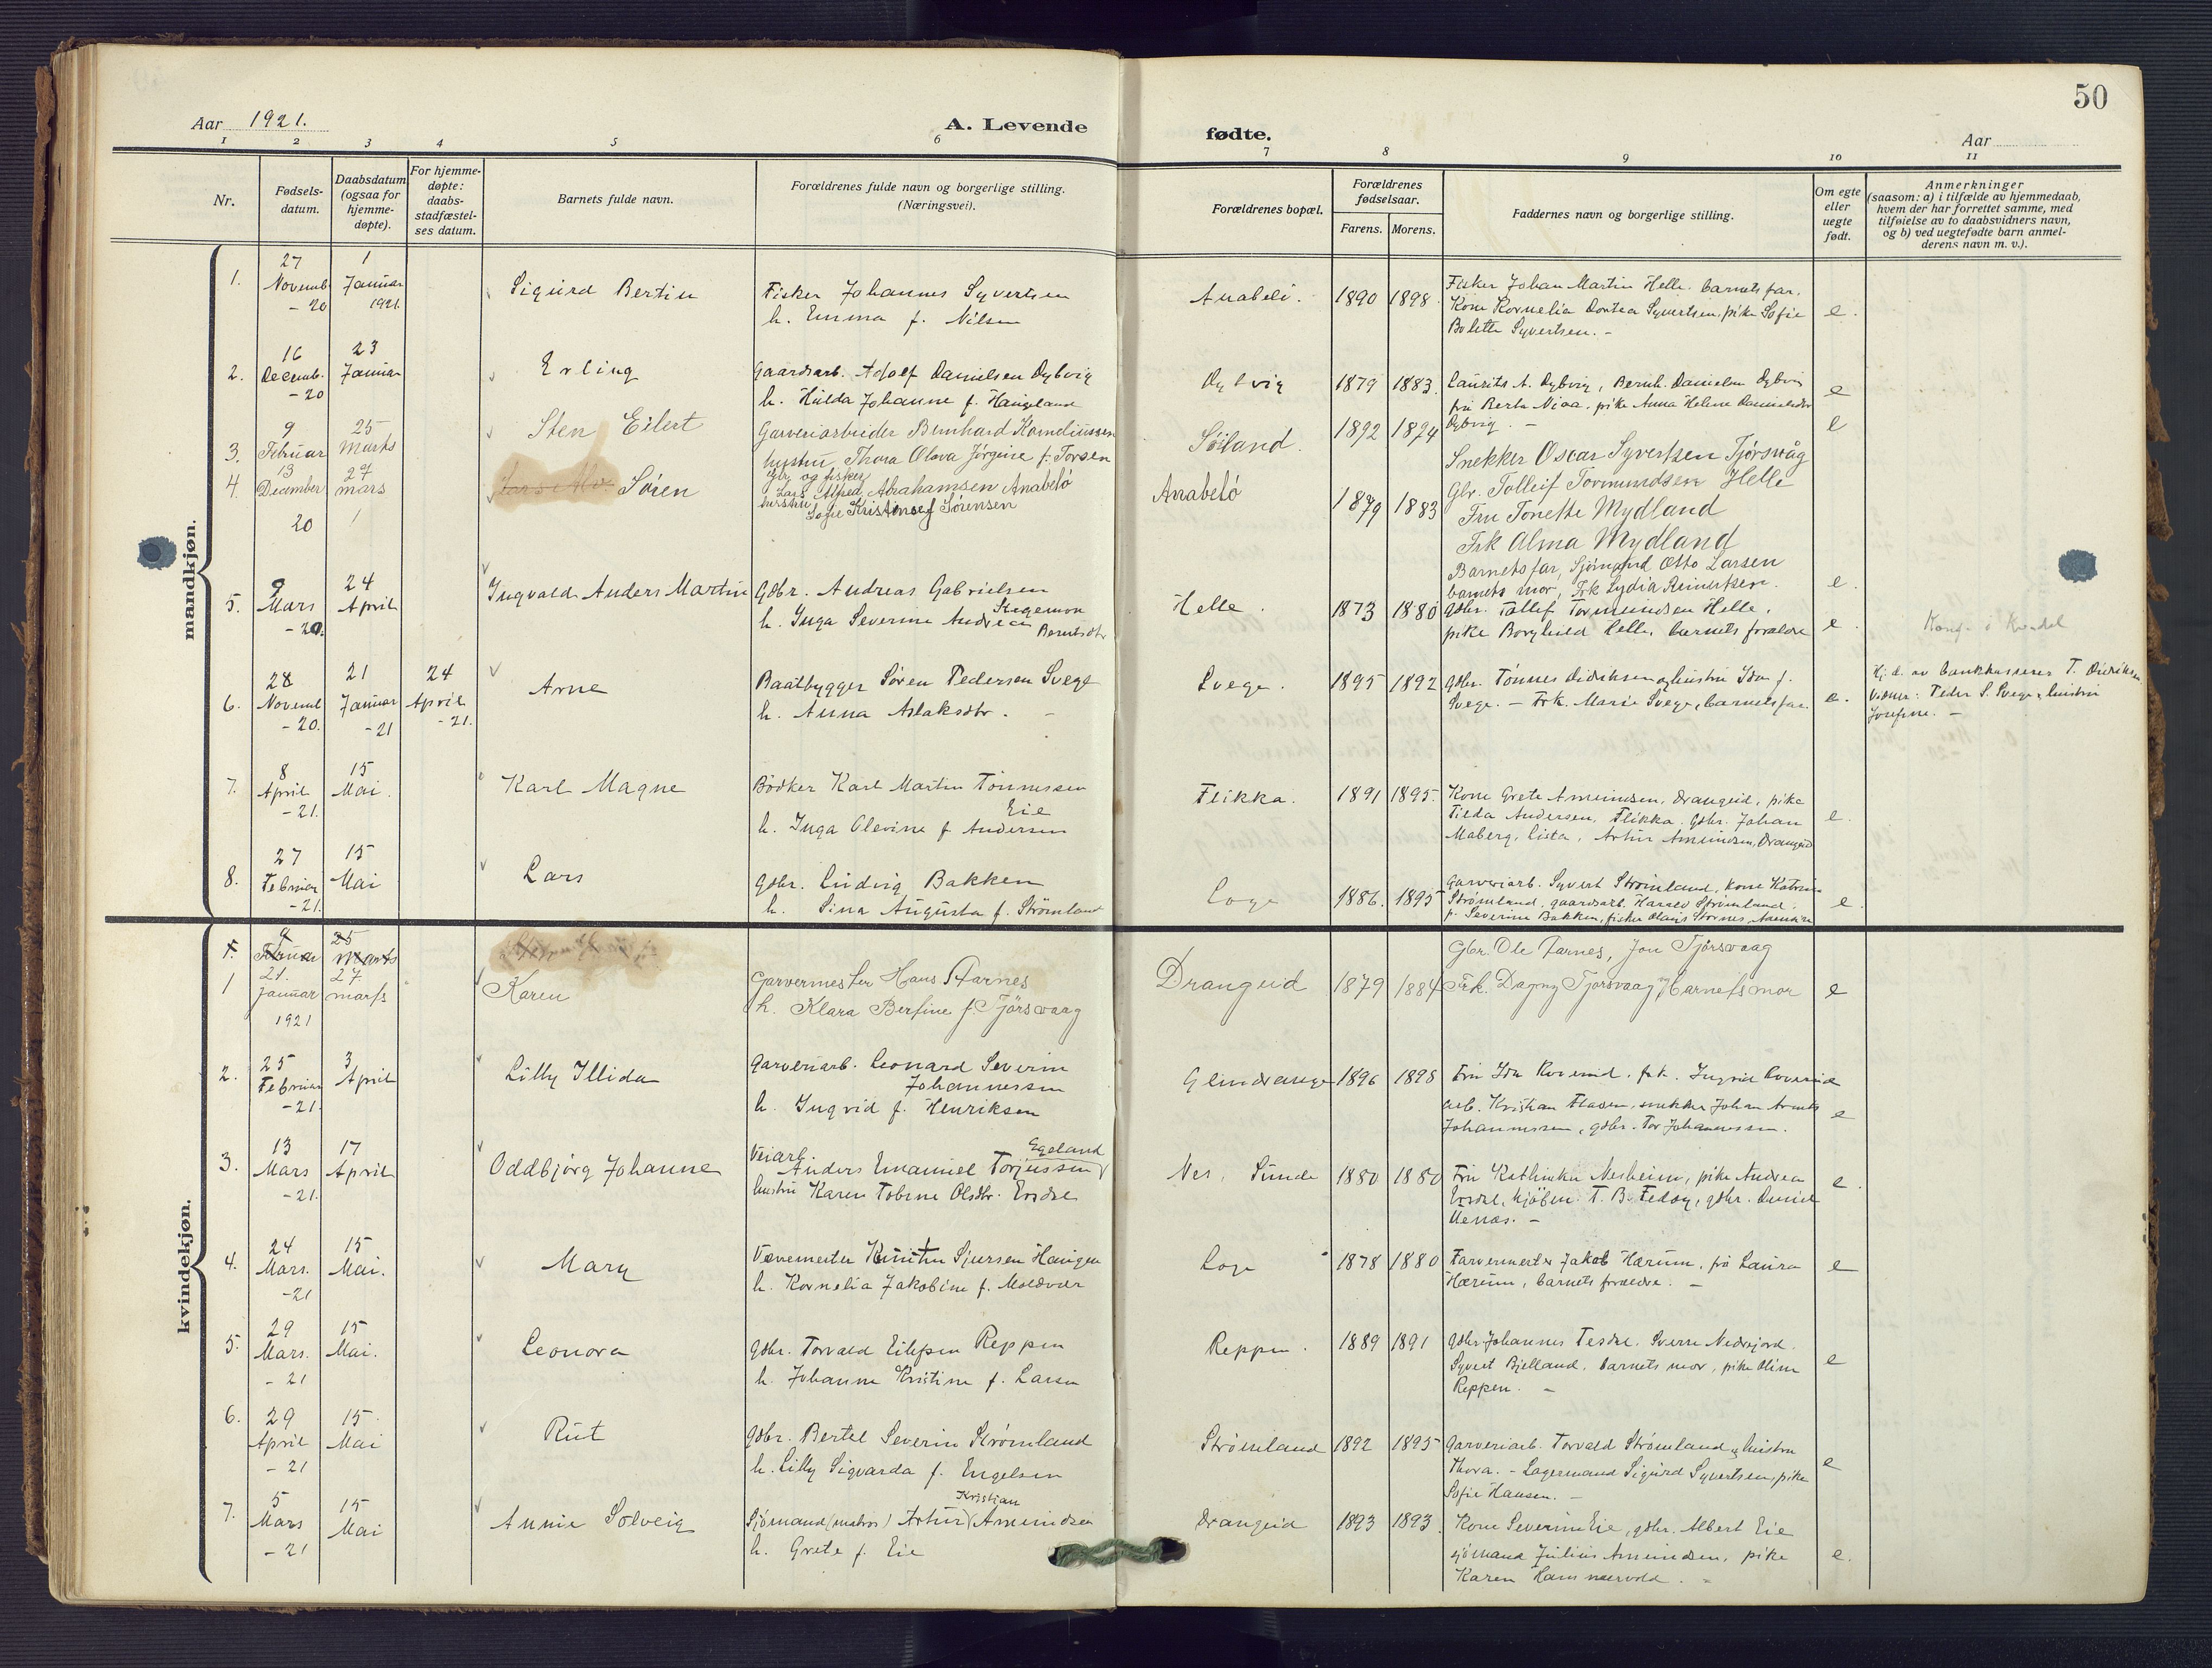 50
Aar 1921.
A. Levende
fødte.
Aar
1 2 3 4 5 6 7 8 9 10 11
Nr.
Fødsels-
datum.
Daabsdatum
(ogsaa for
hjemme-
døpte).
For hjemme-
døpte:
daabs-
stadfæstel-
ses datum.
Barnets fulde navn.
Forældrenes fulde navn og borgerlige stilling.
(Næringsvei).
Forældrenes bopæl.
Forældrenes
fødselsaar.
Farens. Morens.
Faddernes navn og borgerlige stilling.
Om egte
eller
uegte
født.
Anmerkninger
(saasom: a) i tilfælde av hjemmedaab,
hvem der har forrettet samme, med
tilføielse av to daabsvidners navn,
og b) ved uegtefødte barn anmel-
derens navn m. v.).
mandkjøn.
1.
27
Novemb
-20
1
Januar
1921.
Sigurd Bertin
Fisker Johannes Syvertsen
h. Emma f. Nilsen
Anabelö.
1890 1898.
Fisker Johan Martin Helle. barnets far.
Kone Kornelia Dortea Syvertsen, pike Sofie
Bolette Syvertsen. -
e.
2.
16
Decemb.
-20
23
Januar
Erling
Gaardsarb. Adolf Danielsen Dybvig
h. Hulda Johanne f. Haugeland
Dybvig
1879 1883.
Laurits A. Dybvig, Bernh. Danielsen Dybvig
fru Berta Nioa. pike Anna Helene Danielsdtr
Dybvig. -
e
3.
9
Februar
25
Marts
Sten Eilert
Garveriarbeider Bernhard Korneliussen
hustru Thora Olava Jørgine f. Torsen
Söiland.
1892 1894
Snekker Oscar Syvertsen Tjörsvåg
Gbr. Tolleif Tormundsen Helle
Fru Tonette Mydland
Frk Alma Mydland
e
4.
13
December
20
27
mars
Lars Alv. Sören
Gbr og fisker
Lars Alfred Abrahamsen Anabelö
hustru Sofie Kristine f Sörensen
Anabelö
1879 1883
Barnets far, Sjömand Otto Larsen
barnets mor, Frk Lydia Reinertsen.
e.
5.
9
Mars
-20.
24
April
Ingvald Anders Martin
Gdbr. Andreas Gabrielsen
h. Inga Severine Andrea
Berntsdtr
Helle.
1873 1880
gdbr. Tallef Tormundsen Helle,
pike Borghild Helle, barnets forældre
e.
6.
28
Novemb
-20.
21
Januar
-21
24
April
-21.
Arne
Baatbygger Sören Pedersen Svege
h. Anna Aslaksdtr. -
Svege.
1895 1892
gdbr. Tönnes Didriksen og hustru Ida f.
Svege. - Frk. Marie Svege, barnets far.
e.
Hj. d. av bankkasserer T. Didriksen
Vidner: Peder S. Svege & hustru
Josefine. -
7.
8
April
-21.
15
Mai.
Karl Magne
Bödker Karl Martin Tönnessen
Eie
h. Inga Olevine f. Andersen
Flikka.
1891 1895.
Kone Grete Amundsen, Drangeid, pike
Tilda Andersen, Flikka. gdbr. Johan
Maberg, Lista, Artur Amundsen, Drangeid
e.
8.
27
Februar
-21.
15
Mai
Lars
gdbr. Ludvig Bakken
h. Sina Augusta f. Strömland
Loge
1886. 1895
garveriarb. Syvert Strömland, kone Katrine
Strömland, gaardsarb. Harald Strömland.
p. Severine Bakken, fisker Olaus Stornes
e.
kvindekjøn.
1.
9
Februar
25
Marts
1
21.
januar
1921
27.
marts
Karen
Garvermester Hans Aarnes
h. Klara Bertine f. Tjörsvaag
Drangeid
1879 1884
Gbr. Ole Aarnes, Jon Tjörsvaag
Frk. Dagny Tjörsvaag og Barnets mor
e
2.
25
Februar
-21.
3
April
Lilly Illida
Garveriarb. Leonard Severin
Johannessen
h. Ingvid f. Henriksen
Glendrange
1896 1898
arb. Kristian Flaten, snekker Johan
Johannessen, gdbr. Tor Johannessen.
e
3.
13
Mars
-21.
17
April
Oddbjörg Johanne
Veiarb.
Egeland
Anders Emanuel Torjussen
hustru Karen Tobine Olsdtr. Erdre
Nes, Sunde
1880 1880
Fru Kathinka Nesheim, pike Andrea
kjöbm. T. B. Fedög, gdbr. Daniel
Uenæs. -
e.
4.
24
Mars.
-21
15
Mai.
Mary
Sjursen Haugen
h. Kornelia Jakobine f. Moldvær
Loge
1878 1880
Farvermester Jakob Hærum, fru Laura
Hærum, barnets forældre. -
e
5.
29
Mars.
- 21
15
Mai.
Leonora
gdbr. Torvald Eilefsen Reppen
h. Johanne Kristine f. Larsen
Reppen.
1889 1891
gdbr. Johannes Tesdal. Sverre Nedrejord.
Syvert Bjelland, barnets mor, pike Oline
Reppen. -
e
6.
29
April
- 21
15
Mai
Rut
gdbr. Bertel Severin Strömland
h. Lilly Sigvarda f. Engelsen
Strömland
1892 1895
garveriarb. Torvald Strömland & hustru
Thora. - Lagermand Sigurd Syvertsen, pike
Sofie Hansen. -
e
7.
5
Mars
- 21
15
Mai
Annie Solveig
Kristian
Sjömand (matros) Artur Amundsen
h. Grete f. Eie
Drangeid
1893 1893.
Kone Severine Eie, gdbr. Albert Eie
sjömand Julius Amundsen, pike
Karen Hammervold. -
e.